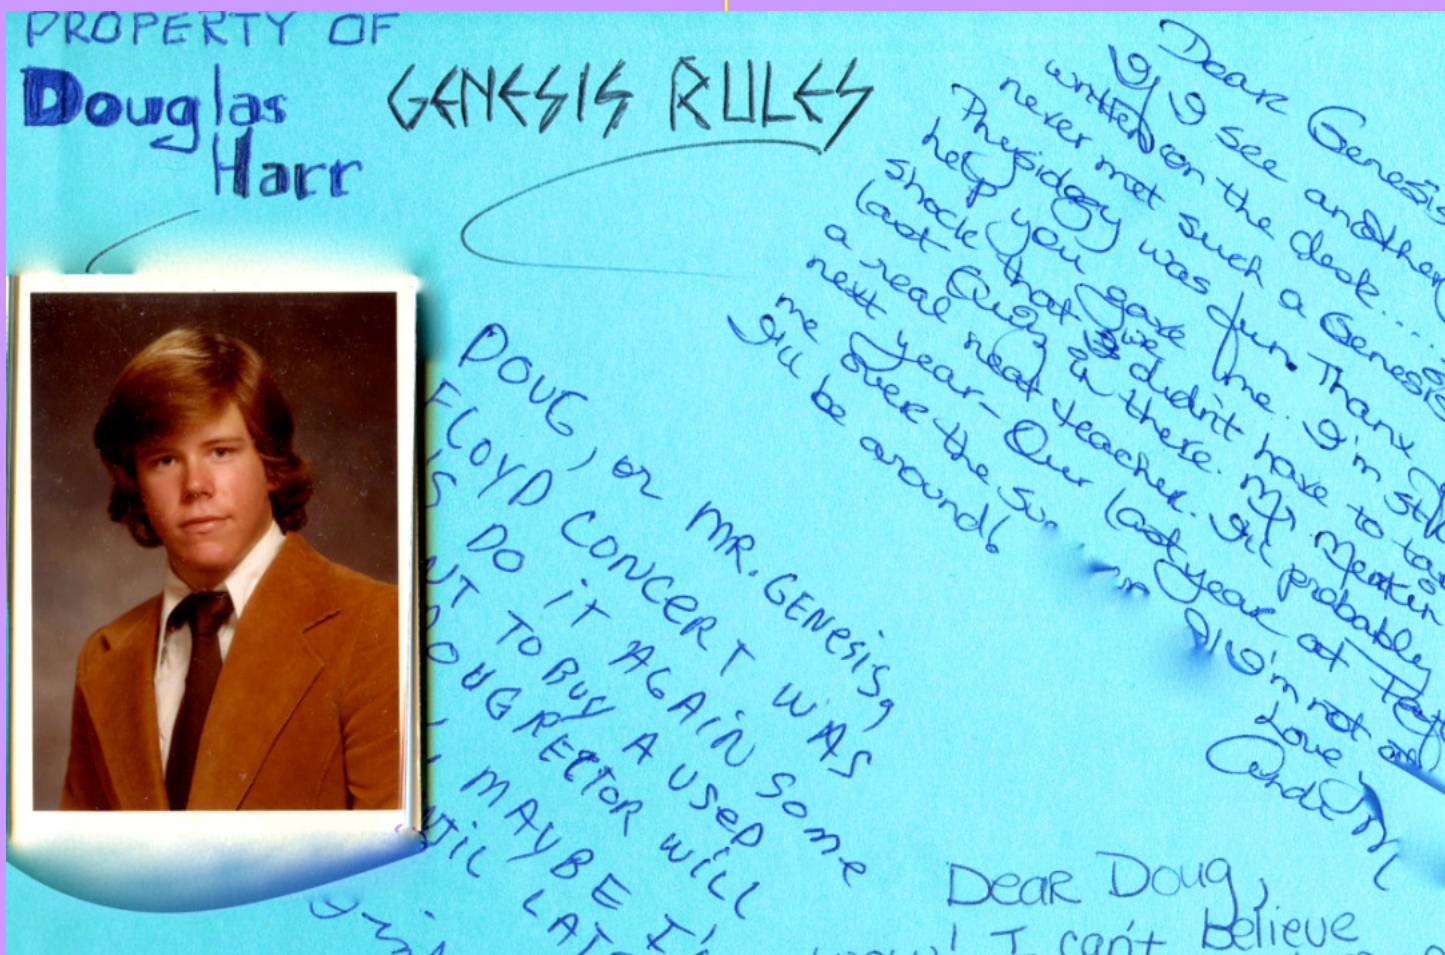 PROPERTY OF
Douglas
Harr
GENESIS RULES
Dear Genesis
If I see another
written on the desk....
never met such a Genesis
Physiology was fun. Thanx
help you gave me. I'm still
shock that we didn't have to take
last Quiz in there. Mr.
a real neat teacher. I'll probably
next year - Our last year at
me over the I'm not
I'll be around!
Love,
DOUG, or MR. GENESIS,
FLOYD CONCERT WAS
DO IT AGAIN SOME
TO BUY A USED
DOUG RECTOR WILL
MAYBE I'
Dear Doug,
I can't believe